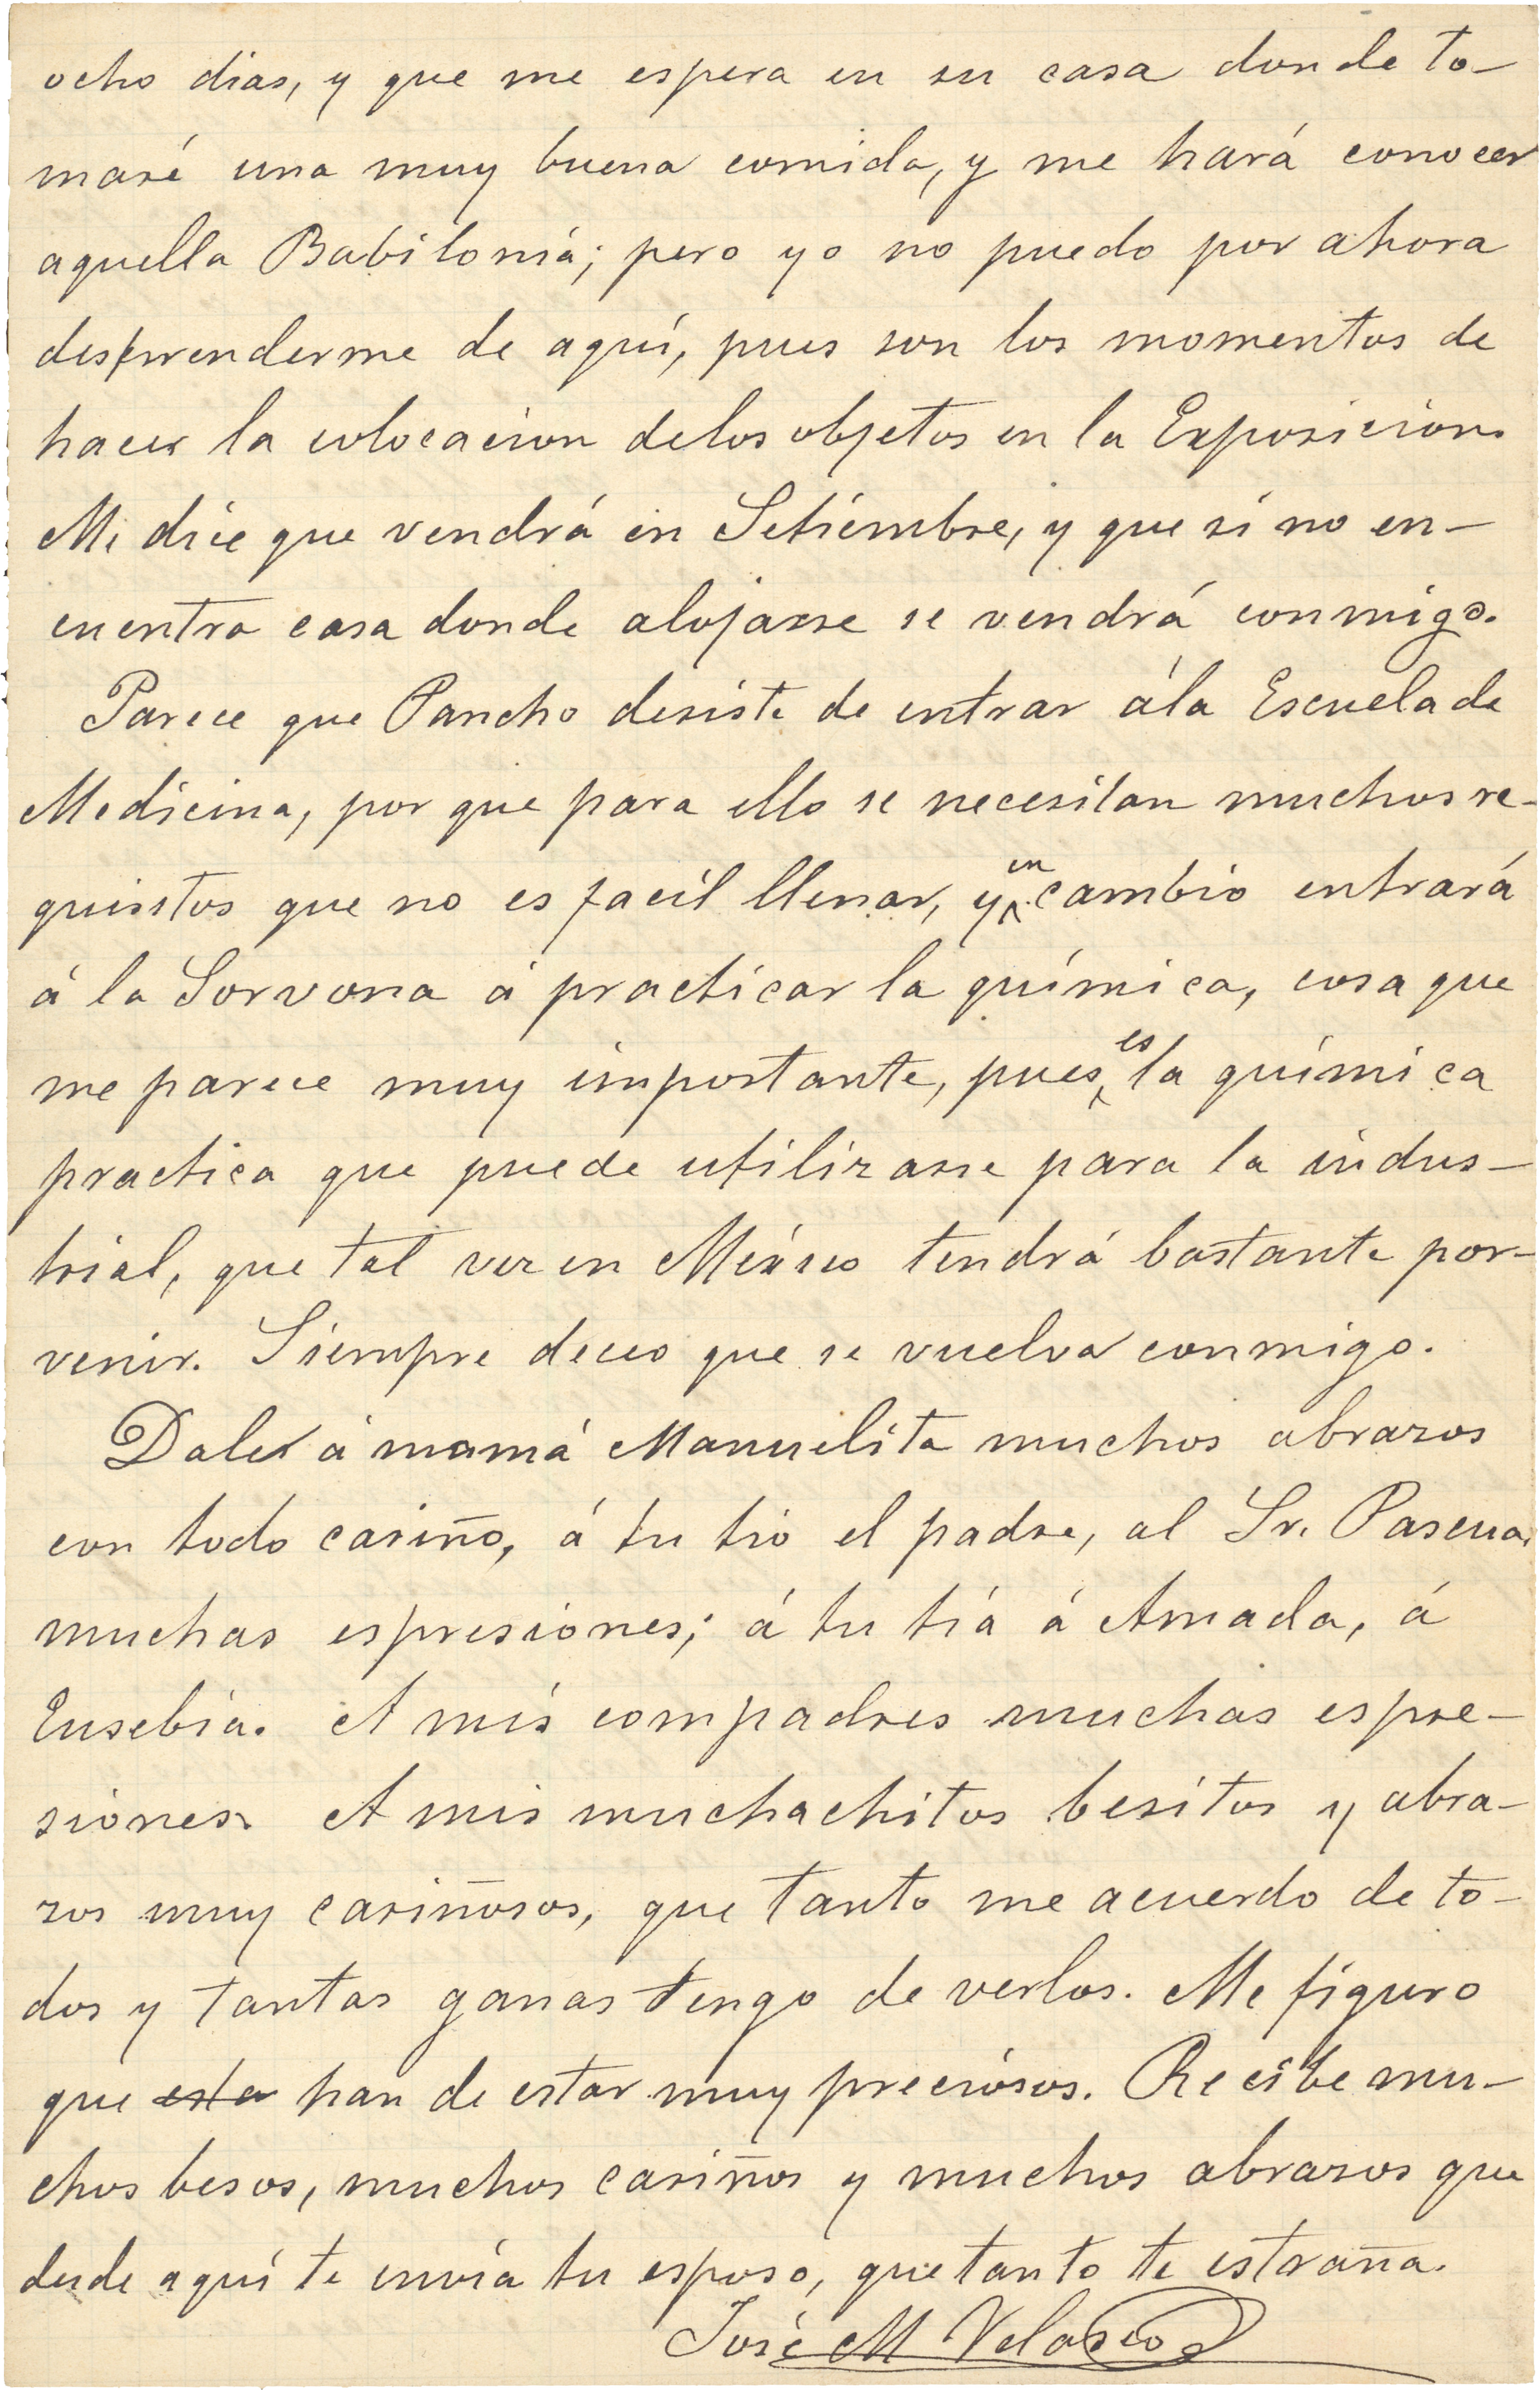 ocho dias, y que me espera en su casa donde to-
maré una muy buena comida, y me hará conocer
aquella Babilonia; pero yo no puedo por ahora
desprenderme de aquí, pues son los momentos de
hacer la colocacion delos objetos en la Exposicion.
Me dice que vendrá en Setiembre, y que si no en-
cuentra casa donde alojarse se vendrá conmigo.
Parece que Pancho desiste de entrar ála Escuela de
Medicina, por que para ello se necesitan muchos re-
quisitos que no es facil llenar, y en cambio entrará
á la Sorvona á practicar la química, cosa que
me parece muy importante, pues es la química
practica que puede utilizarse para la indus-
trial, que tal vez en México tendrá bastante por-
venir. Siempre deceo que se vuelva conmigo.
Dale á mamá Manuelita muchos abrazos
con todo cariño, á tu tio el padre, al Sr. Pascua,
muchas espresiones; á tu tiá á Amada, á
Eusebia. A mis compadres muchas espre-
siones. A mis muchachitos besitos y abra-
zos muy cariñosos, que tanto me acuerdo de to-
dos y tantas ganas tengo de verlos. Me figuro
que esta han de estar muy preciosos. Recibe mu-
chos besos, muchos cariños y muchos abrazos que
desde aquí te envía tu esposo, que tanto te estraña.
José M Velasco